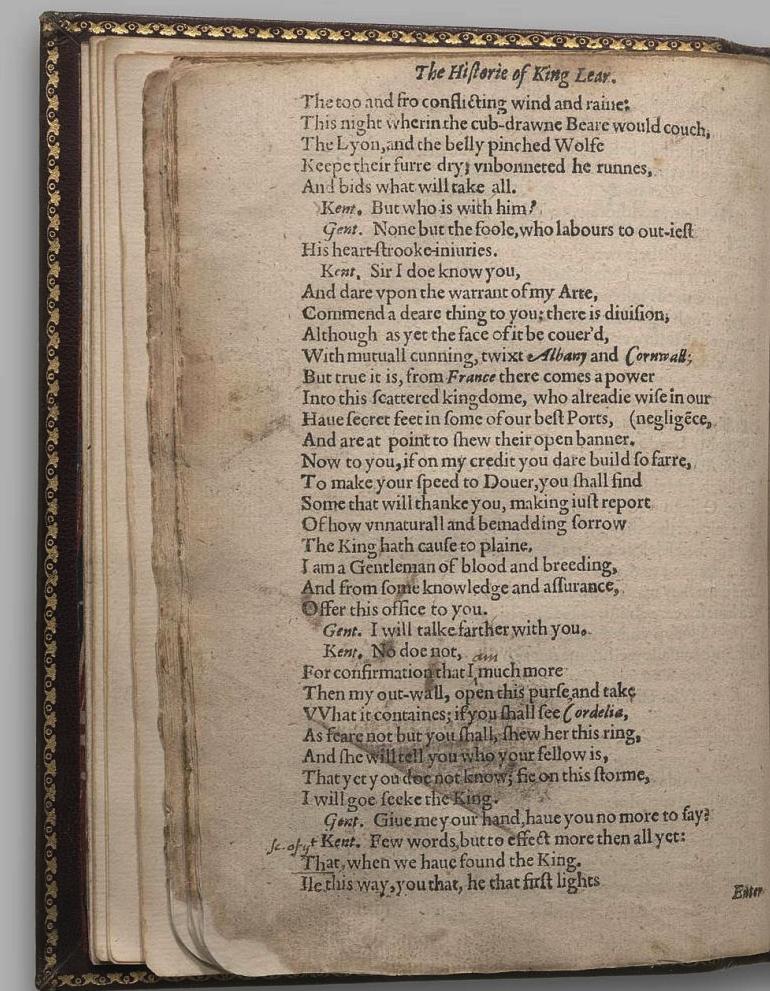 The Hiſtorie of King Lear.
The too and fro conflicting wind and raine:
This night wherin the cub-drawne Beare would couch,
The Lyon, and the belly pinched Wolfe
Keepe their furre dry; vnbonneted he runnes,
And bids what will take all.
Kent. But who is with him?
Gent. None but the foole, who labours to out-ieſt
His heart-ſtrooke iniuries.
Kent. Sir I doe know you,
And dare vpon the warrant of my Arte,
Commend a deare thing to you; there is diuiſion,
Although as yet the face of it be couer'd,
With mutuall cunning, twixt Albany and Cornwall;
But true it is, from France there comes a power
Into this ſcattered kingdome, who alreadie wiſe in our
Haue ſecret feet in ſome of our beſt Ports, (negligẽce,
And are at point to ſhew their open banner.
Now to you, if on my credit you dare build ſo farre,
To make your ſpeed to Douer, you ſhall find
Some that will thanke you, making iuſt report
Of how vnnaturall and bemadding ſorrow
The King hath cauſe to plaine.
I am a Gentleman of blood and breeding,
And from ſome knowledge and aſſurance,
Offer this office to you.
Gent. I will talke farther with you.
Kent. No doe not,
am
For confirmation that I much more
Then my out-wall, open this purſe and take
VVhat it containes; if you ſhall ſee Cordelia,
As feare not but you ſhall, ſhew her this ring,
And ſhe will tell you who your fellow is,
That yet you doe not know; fie on this ſtorme,
I will goe ſeeke the King.
Gent. Giue me your hand, haue you no more to ſay?
Kent. Few words, but to effect more then all yet:
That, when we haue found the King.
Ile this way, you that, he that firſt lights
Enter